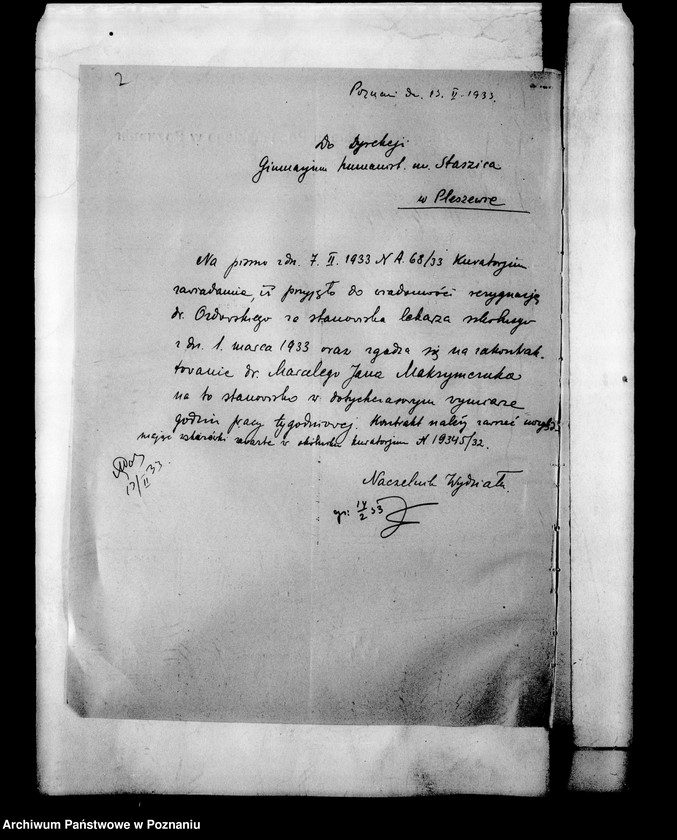 2
Poznań dn. 13. II. 1933.
Do Dyrekcji
Gimnazjum humanist. im. Staszica
w Pleszewie
Na pismo z dn. 7. II. 1933 N A. 68/33 Kuratorjum
zawiadamia, iż przyjęło do wiadomości rezygnację
dr. Ozdowskiego ze stanowiska lekarza szkolnego
z dn. 1. marca 1933 oraz zgadza się na zakontrak-
towanie dr. Marcelego Jana Maksymczuka
na to stanowisko w dotychczasowym wymiarze
godzin pracy tygodniowej. Kontrakt należy zawrzeć uwzględ-
niając wskazówki zawarte w okólniku Kuratorjum N 19345/32.
13/II 33.
Naczelnik Wydziału
33
Archiwum Państwowe w Poznaniu